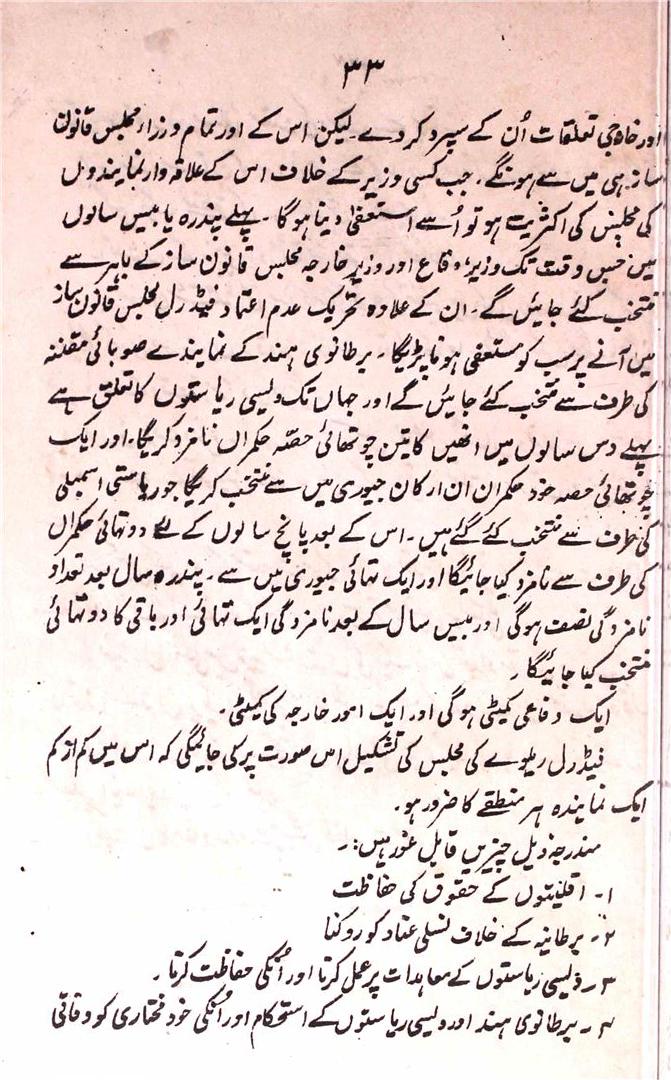 ۳۳
اور خارجی تعلقات اُن کے سپرد کر دے۔ لیکن اس کے اور تمام وزراء مجلس قانون
ساز ہی میں سے ہونگے۔ جب کسی وزیر کے خلاف اس کے علاقہ وار نمایندوں
کی مجلس کی اکثریت ہو تو اُسے استعفیٰ دینا ہوگا۔ پہلے پندرہ یا بیس سالوں
میں جس وقت تک وزیر دفاع اور وزیر خارجہ مجلس قانون ساز کے باہر سے
منتخب کئے جائیں گے۔ ان کے علاوہ تحریک عدم اعتماد فیڈرل مجلس قانون ساز
میں آنے پر سب کو مستعفی ہونا پڑیگا۔ برطانوی ہند کے نمایندے صوبائی مقننہ
کی طرف سے منتخب کئے جائیں گے اور جہاں تک دیسی ریاستوں کا تعلق ہے
پہلے دس سالوں میں انھیں کا تین چوتھائی حصّہ حکمراں نامزد کریگا۔ اور ایک
چوتھائی حصہ خود حکمران ان ارکان جیوری میں سے منتخب کریگا جو ریاستی اسمبلی
کی طرف سے منتخب کئے گئے ہیں۔ اس کے بعد پانچ سالوں کے لئے دو تہائی حکمراں
کی طرف سے نامزد کیا جائیگا اور ایک تہائی جیوری میں سے۔ پندرہ سال بعد تعداد
نامزدگی نصف ہوگی اور بیس سال کے بعد نامزدگی ایک تہائی اور باقی کا دو تہائی
منتخب کیا جائیگا۔
ایک دفاعی کمیٹی ہوگی اور ایک امور خارجہ کی کمیٹی۔
فیڈرل ریلوے کی مجلس کی تشکیل اس صورت پر کی جائیگی کہ اس میں کم از کم
ایک نمایندہ ہر منطقے کا ضرور ہو۔
مندرجہ ذیل چیزیں قابل غور ہیں:۔
۱۔ اقلیتوں کے حقوق کی حفاظت
۲۔ برطانیہ کے خلاف نسلی عناد کو روکنا
۳۔ دیسی ریاستوں کے معاہدات پر عمل کرنا اور اُنکی حفاظت کرنا۔
۴۔ برطانوی ہند اور دیسی ریاستوں کے استحکام اور اُنکی خود مختاری کو وفاقی